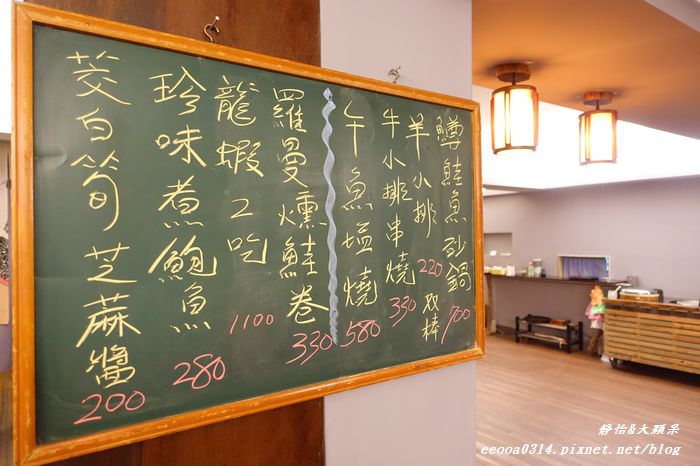 鱒鮭魚砂鍋 700
羊小排 220 双棒
牛小排串燒 330
午魚塩燒 580
羅曼燻鮭卷 330
龍蝦2吃 1100
珍味煮鮑魚 280
茭白筍芝麻醬 200
靜怡&大顆呆
ceooa0314.pixnet.net/blog